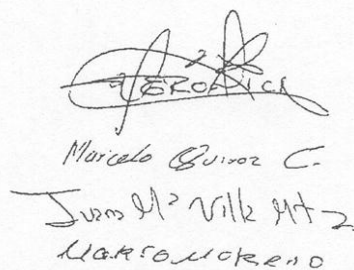 VERONICA
Maricelo Quiroz C.
Juan Mª Villa Mtz
Marko Moreno